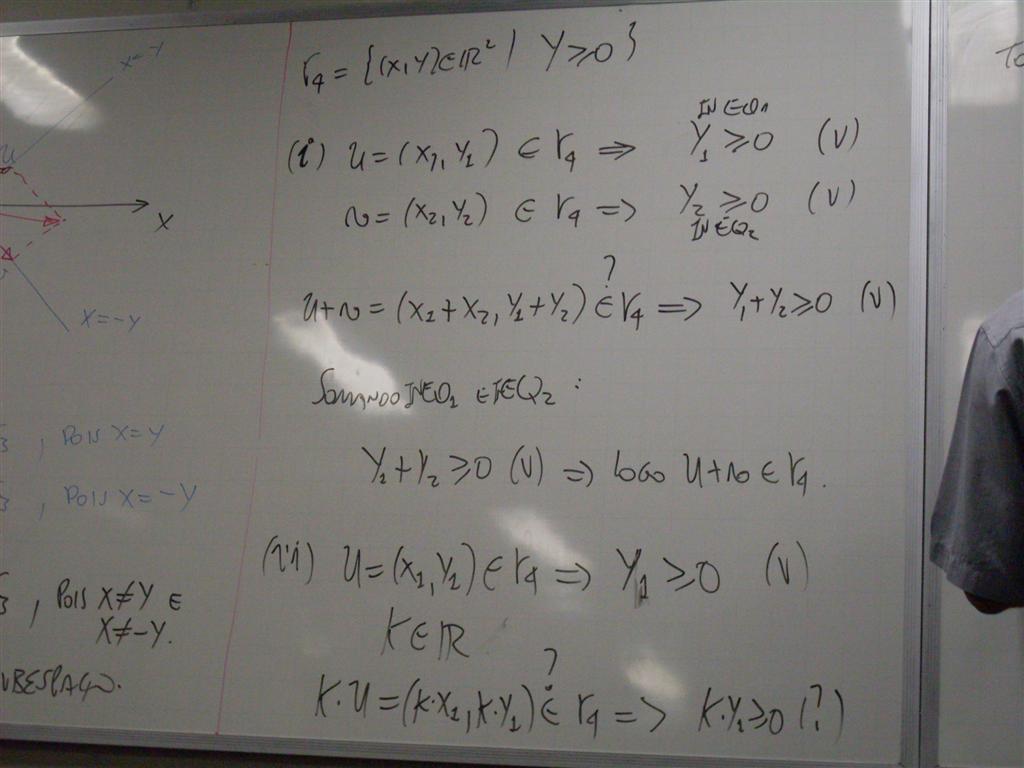 X=Y
X
X=-Y
, POIS X=Y
, POIS X=-Y
, POIS X≠Y E
X≠-Y.
UBESPAÇO.
r₄ = {(X,Y)∈ℝ² | Y≥0}
INEQ1
(i) u = (X₁, Y₁) ∈ r₄ ⇒ Y₁ ≥ 0 (V)
v = (X₂, Y₂) ∈ r₄ => Y₂ ≥ 0 (V)
INEQ2
?
u+v = (X₁+X₂, Y₁+Y₂) ∈ r₄ => Y₁+Y₂ ≥ 0 (V)
SOMANDO INEQ1 E INEQ2 :
Y₁+Y₂ ≥ 0 (V) => LOGO u+v ∈ r₄.
(ii) u = (X₁, Y₁) ∈ r₄ => Y₁ ≥ 0 (V)
K ∈ ℝ
?
K·u = (K·X₁, K·Y₁) ∈ r₄ => K·Y₁ ≥ 0 (?)
To